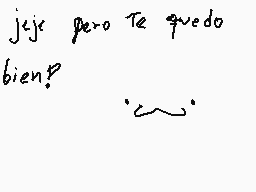 jeje pero Te quedo
bien?